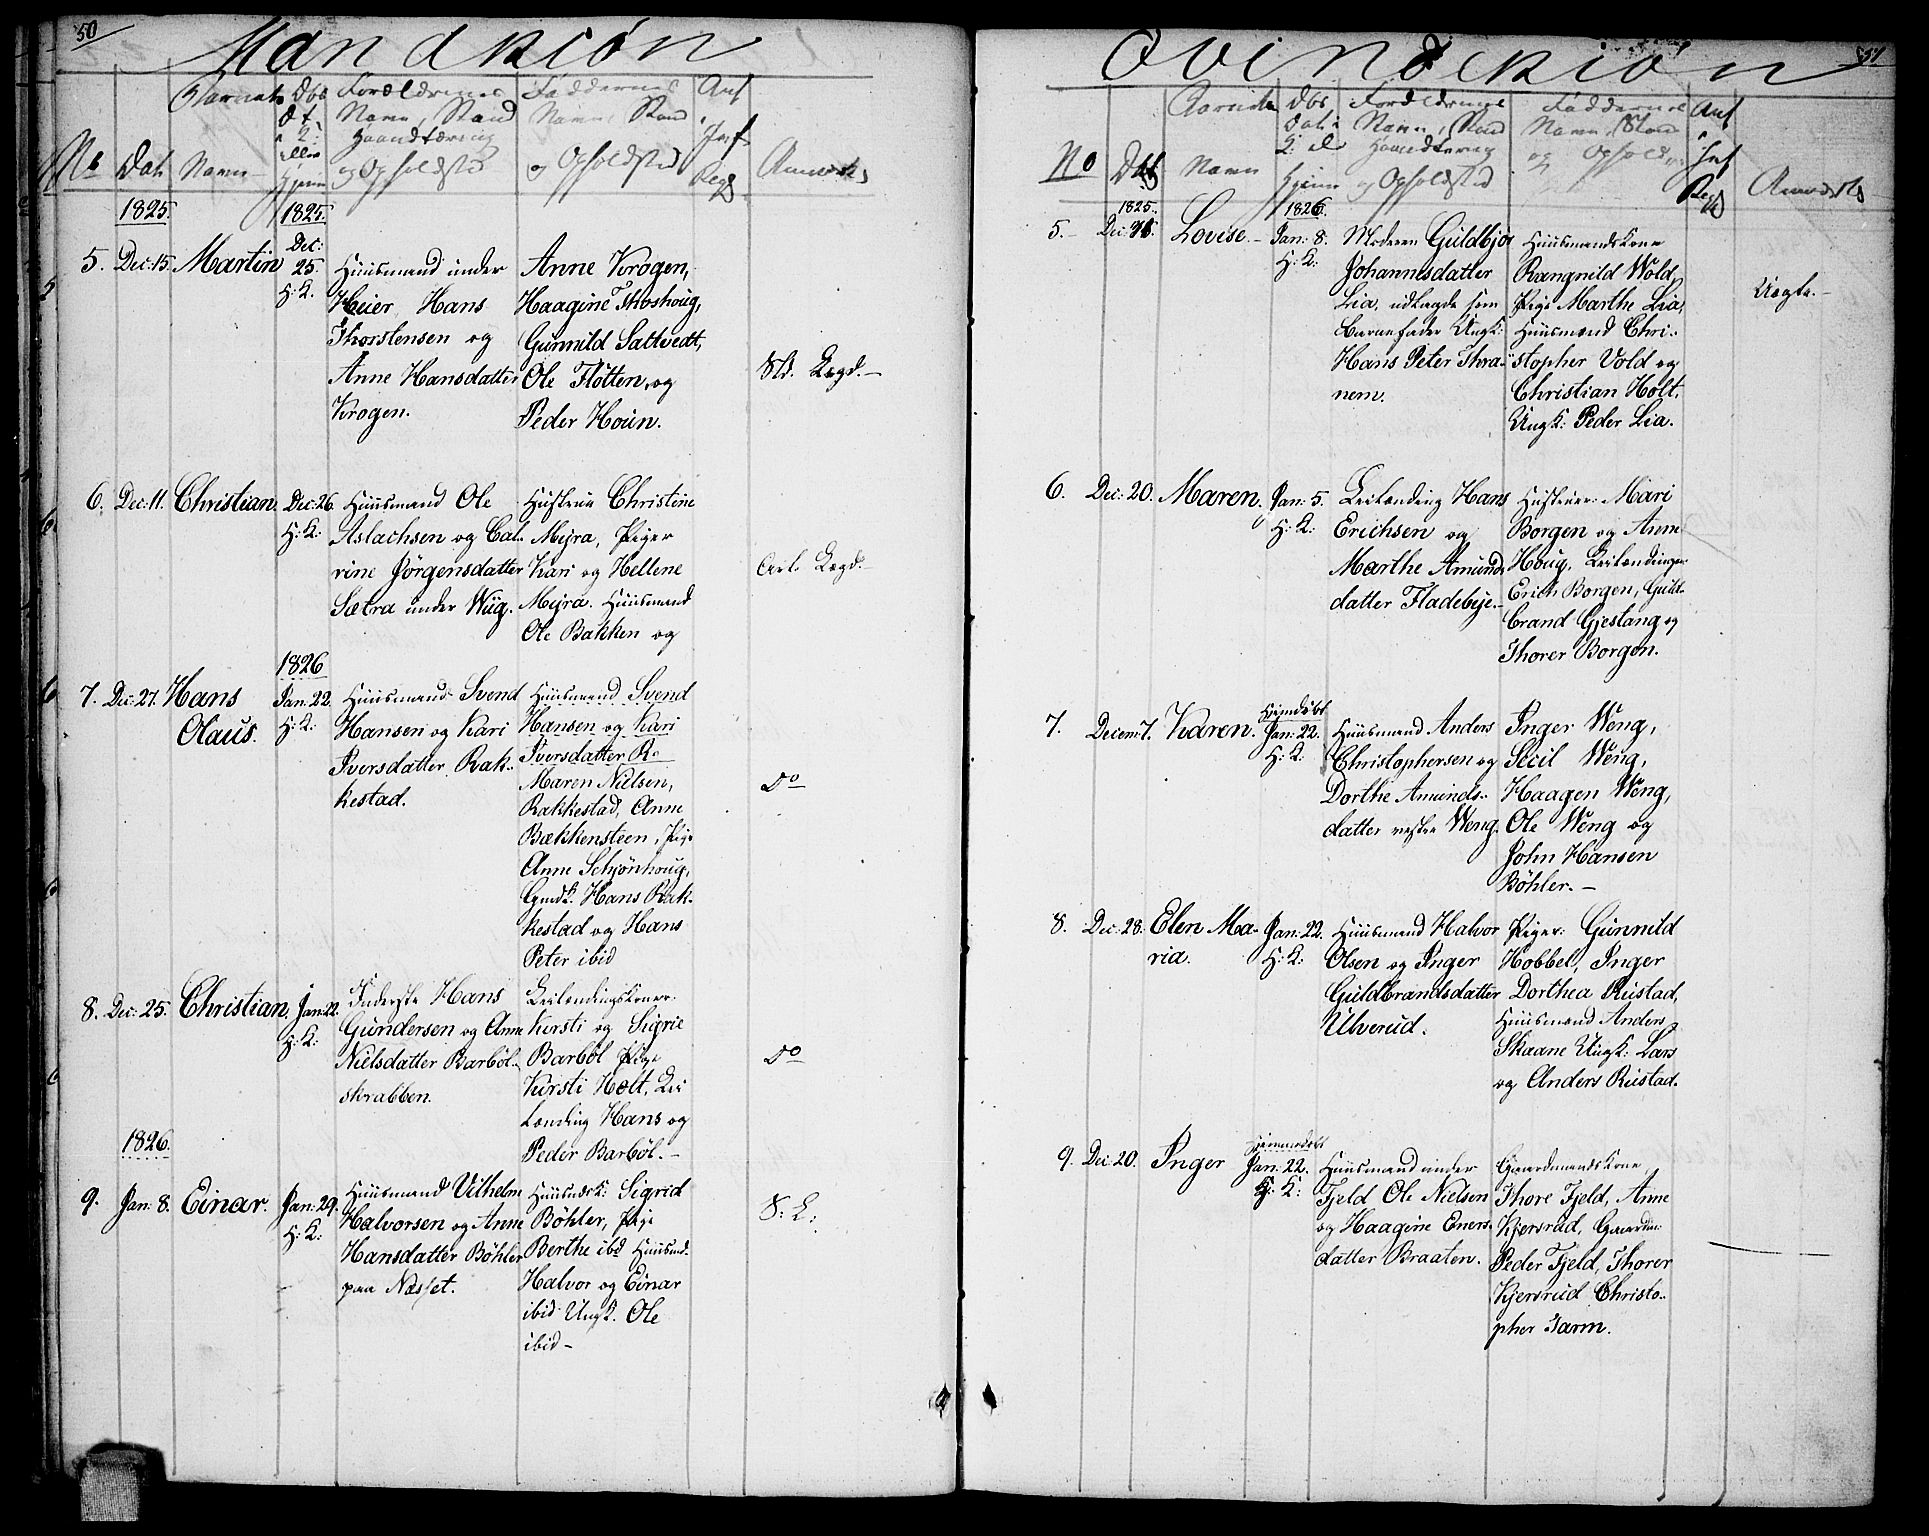 50
Mandkiøn
No
Dat
Navn
Barnets
Dbs
Dt.
2:
eller
Hjem
Forældrenes
Navn, Stand
Haandtæring
og Opholdsted
Faddernes
Navn, Stand
og Opholdsted
Anf
Jnf
Regs
Anmærk
1825.
1825.
5. Dec: 15. Martin
Dec:
25.
H: K.
Huusmand under
Heier Hans
Thorstensen og
Anne Hansdatter
Krogen.
Anne Krogen,
Haagine Thoshoug,
Gunnild Sattvedt,
Ole Fløtten, og
Peder Houn.
Std. Lægd.-
6. Dec: 11. Christian.
Dec: 26.
H: K:
Huusmand Ole
Aslachsen og Cat-
rine Jörgensdatter
Sætra under Wüg.
Hustrue Christine
Myra, Piger
Kari og Hellene
Myra. Huusmand
Ole Bakken og
Carls Lægd.-
1826
7. Dec: 27. Hans
Olaus.
Jan: 22.
H: K:
Huusmand Svend
Hansen og Kari
Iversdatter Rak-
kestad.
Huusmand Svend
Hansen og Kari
Iversdatter R
Maren Nielsen,
Rakkestad, Anne
Bækkensteen, Pige
Anne Schjönhoug,
Gmdk. Hans Rak-
kestad og Hans
Peter ibid
Do
8. Dec: 25. Christian.
Jan: 22.
H: K:
Inderste Hans
Gundersen og Anne
Nielsdatter Barböl-
skrabben.
Leilændingskoner:
Kersti og Sigrie
Barböl Pige
Kersti Holt, Lei
lænding Hans og
Peder Barböl.-
Do
1826.
9. Jan: 8. Einar.
Jan: 29.
H: K:
Huusmand Vilhelm
Halvorsen og Anne
Hansdatter Böhler
paa Næsset.
Huusmdsk: Sigrid
Böhler, Pige
Berthe ibd Huusmd.
Halvor og Einar
ibid Ungk. Ole
ibid-
S: L:
51
Qvindekiøn
No
Dat
Navn
Dbs
Dat i
Hjem
Forældrenes
Navn, Stand
Haandtering
og Opholdsted
Faddernes
Navn, Stand
og Ophold
Anf
Jnf
Regs
Anmærk
1825.
1826.
5.- Dec: Lovise.-
Jan: 8.
H: K:
Moderen Guldbjor
Johannesdatter
Lia, udlagde som
Barnefader Ungk:
Hans Peter Thra-
nem.
Huusmandskone
Rangnild Wold,
Pige Marthe Lia,
Huusmand Chri-
stopher Vold og
Christian Holt,
Ungk: Peder Lia.
Uægte.-
6. Dec: 20. Maren.
Jan: 5.
H: K:
Leilænding Hans
Erichsen og
Marthe Amunds
datter Fladebye.-
Hustruer: Mari
Borgen og Anne
Houg, Leilændinger
Erich Borgen, Guld-
brand Gjestang og
Thorer Borgen.
7. Decem: 7. Karen.
Hjemdøbt
Jan: 22.
H: K:
Huusmand Anders
Christophersen og
Dorthe Amunds-
datter vestre Weng.
Inger Weng,
Sicil Weng,
Haagen Weng,
Ole Weng og
John Hansen
Böhler.-
8. Dec: 28. Elen Ma-
ria.
Jan: 22.
H: K:
Huusmand Halvor
Olsen og Inger
Guldbrandsdatter
Ulverud.
Piger: Gunnild
Hobbel, Inger
Dorthea Rustad,
Huusmand Anders
Skaane Ungk: Lars
og Anders Rustad.
9. Dec: 20. Inger
Hjemmedøbt
Jan: 22.
H: K:
Huusmand under
Fjeld Ole Nielsen
og Haagine Eners-
datter Braaten.
Gaardmandskone
Thore Fjeld, Anne
Kjersrud, Gaardm:
Peder Fjeld, Thorer
Kjersrud Christo-
pher Tarm.